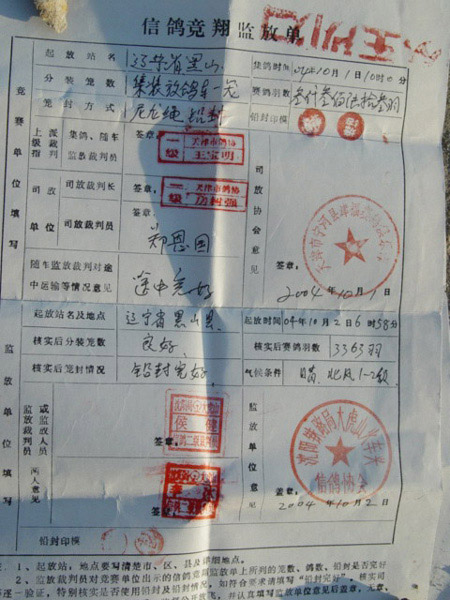 信鸽竞翔监放单
起放站名 辽宁省黑山 集鸽时间 2004年10月1日10时0分
分装笼数 集装放鸽车一 赛鸽羽数 叁仟叁佰陆拾叁羽
笼封方式 尼龙绳 铅封 铅封印模
竞赛单位填写
上级指判 派裁判 集鸽、随车监放裁判员 签章: 一级 天津市鸽协 王宝明
司放单位 司放裁判长 签章: 一级 天津市鸽协
司放裁判员 郑恩国
司放协会意见 签章:
随车监放裁判对途中运输等情况意见 途中完好 2004年10月1日
监放单位填写
起放站名及地点 辽宁省黑山县 起放时间 04年10月2日6时58分
核实后分装笼数 良好 核实后赛鸽羽数 3363羽
核实后笼封情况 铅封完好 气候条件 晴、北风1-2级
监放裁判员 或监放人员 两人意见 签章: 侯健
监放单位意见 沈阳铁路局大虎山 信鸽协会 盖章:
2004年10月2日
铅封印模
1、起放站,地点要写清楚市、区、县及详细地点。
2、监放裁判员对竞赛单位出示的信鸽竞翔监放单上所列的笼数、鸽数、铅封是否完好
逐一验证,特别核实是否使用铅封及铅封情况,如符合要求请填写“铅封完好”,核实司